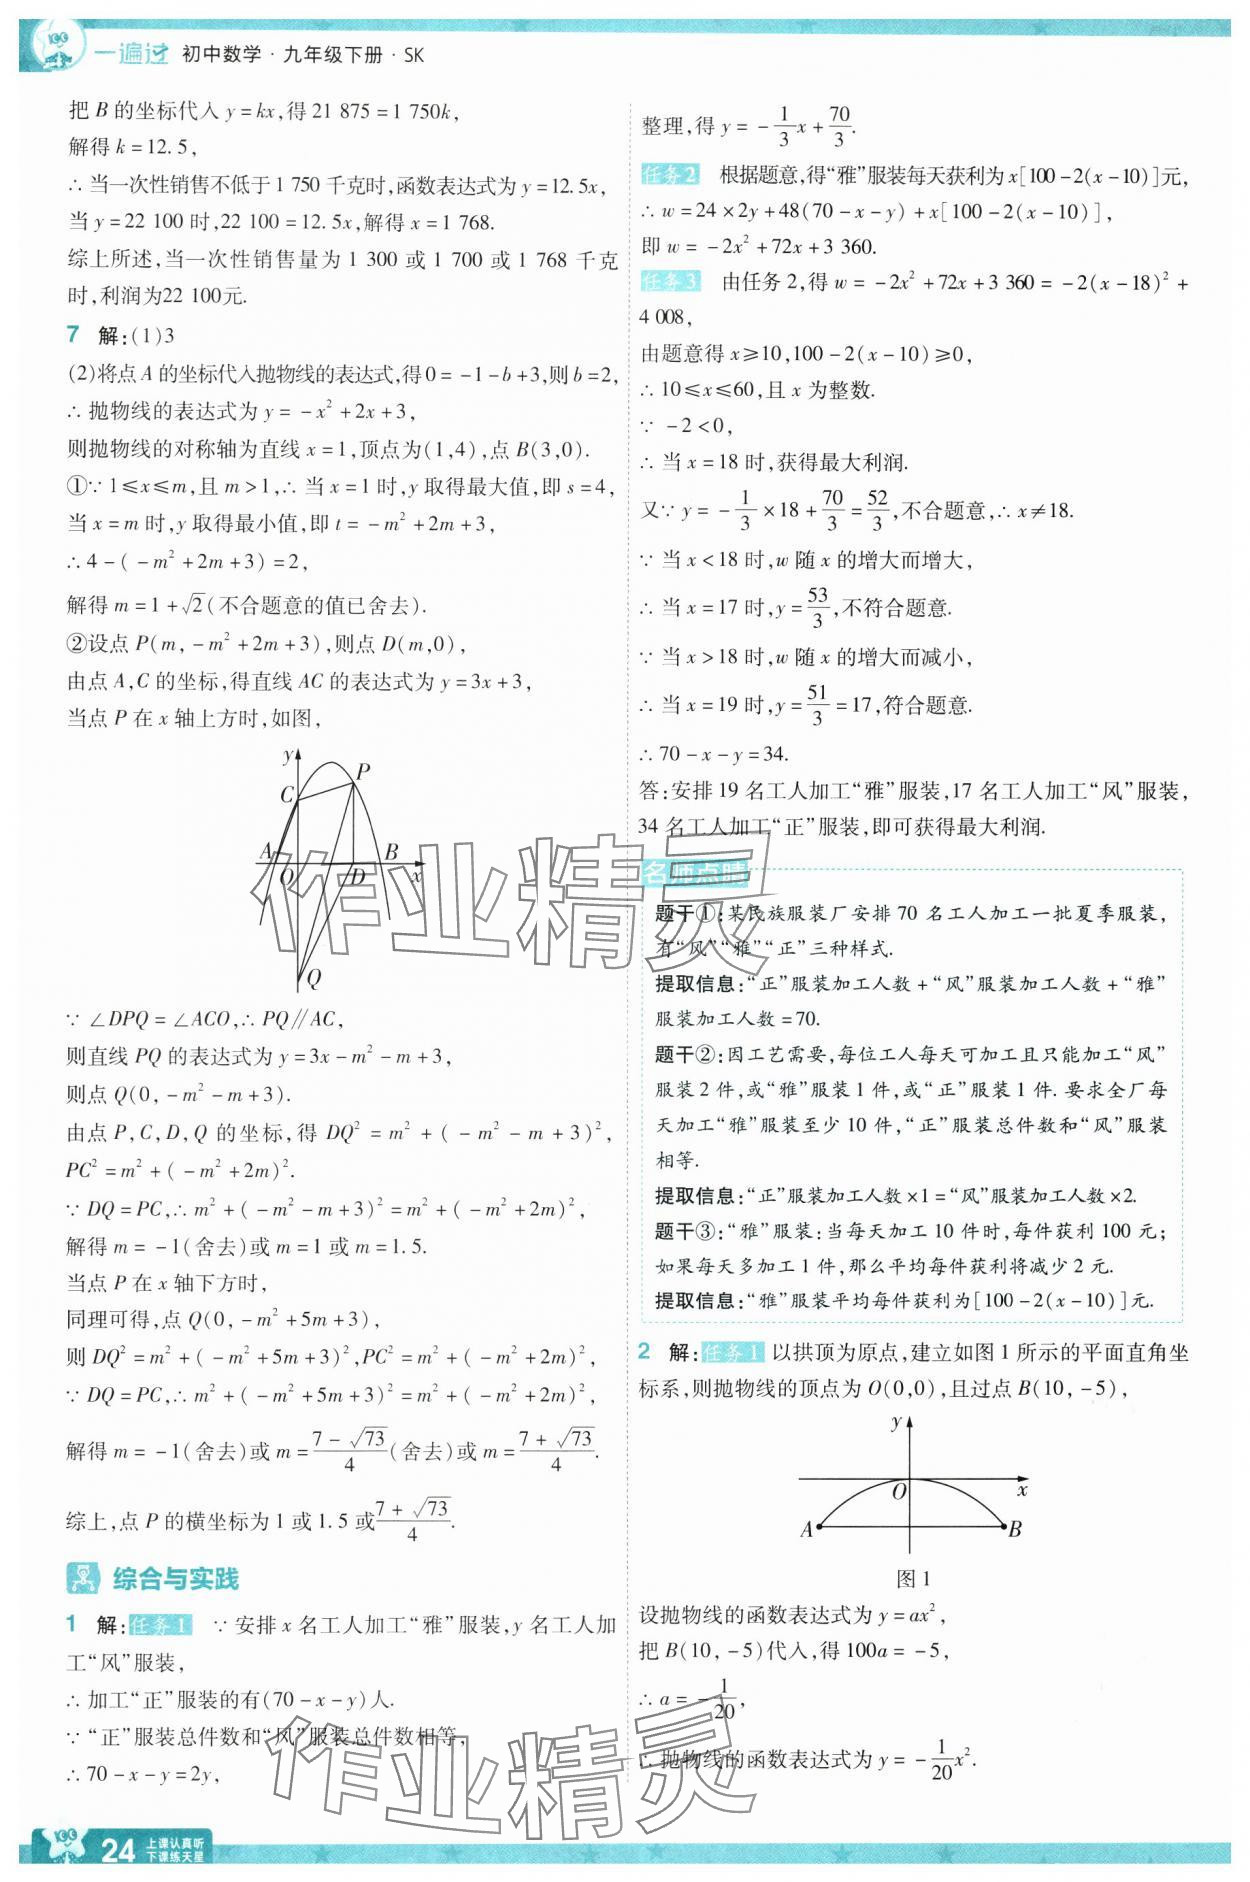 一遍过 初中数学·九年级下册·SK
把 B 的坐标代入 y=kx,得 21 875=1 750k,
解得 k=12.5,
∴ 当一次性销售不低于 1 750 千克时,函数表达式为 y=12.5x,
当 y=22 100 时,22 100=12.5x,解得 x=1 768.
综上所述,当一次性销售量为 1 300 或 1 700 或 1 768 千克
时,利润为22 100元.
7 解:(1)3
(2)将点 A 的坐标代入抛物线的表达式,得 0=-1-b+3,则 b=2,
∴ 抛物线的表达式为 y=-x²+2x+3,
则抛物线的对称轴为直线 x=1,顶点为(1,4),点 B(3,0).
①∵ 1≤x≤m,且 m>1,∴ 当 x=1 时,y 取得最大值,即 s=4,
当 x=m 时,y 取得最小值,即 t=-m²+2m+3,
∴4-(-m²+2m+3)=2,
解得 m=1+√2(不合题意的值已舍去).
②设点 P(m,-m²+2m+3),则点 D(m,0),
由点 A,C 的坐标,得直线 AC 的表达式为 y=3x+3,
当点 P 在 x 轴上方时,如图,
y
P
C
A
O
D
B
x
Q
∵ ∠DPQ=∠ACO,∴ PQ∥AC,
则直线 PQ 的表达式为 y=3x-m²-m+3,
则点 Q(0,-m²-m+3).
由点 P,C,D,Q 的坐标,得 DQ²=m²+(-m²-m+3)²,
PC²=m²+(-m²+2m)².
∵ DQ=PC,∴ m²+(-m²-m+3)²=m²+(-m²+2m)²,
解得 m=-1(舍去)或 m=1 或 m=1.5.
当点 P 在 x 轴下方时,
同理可得,点 Q(0,-m²+5m+3),
则 DQ²=m²+(-m²+5m+3)²,PC²=m²+(-m²+2m)²,
∵ DQ=PC,∴ m²+(-m²+5m+3)²=m²+(-m²+2m)²,
解得 m=-1(舍去)或 m=(7-√73)/4(舍去)或 m=(7+√73)/4.
综上,点 P 的横坐标为 1 或 1.5 或(7+√73)/4.
综合与实践
1 解:任务1 ∵ 安排 x 名工人加工“雅”服装,y 名工人加
工“风”服装,
∴ 加工“正”服装的有(70-x-y)人.
∵ “正”服装总件数和“风”服装总件数相等,
∴70-x-y=2y,
整理,得 y=-1/3x+70/3.
任务2 根据题意,得“雅”服装每天获利为 x[100-2(x-10)]元,
∴ w=24×2y+48(70-x-y)+x[100-2(x-10)],
即 w=-2x²+72x+3 360.
任务3 由任务 2,得 w=-2x²+72x+3 360=-2(x-18)²+
4 008,
由题意得 x≥10,100-2(x-10)≥0,
∴ 10≤x≤60,且 x 为整数.
∵ -2<0,
∴ 当 x=18 时,获得最大利润.
又∵ y=-1/3×18+70/3=52/3,不合题意,∴ x≠18.
∵ 当 x<18 时,w 随 x 的增大而增大,
∴ 当 x=17 时,y=53/3,不符合题意.
∵ 当 x>18 时,w 随 x 的增大而减小,
∴ 当 x=19 时,y=51/3=17,符合题意.
∴ 70-x-y=34.
答:安排 19 名工人加工“雅”服装,17 名工人加工“风”服装,
34 名工人加工“正”服装,即可获得最大利润.
名师点睛
题干①:某民族服装厂安排 70 名工人加工一批夏季服装,
有“风”“雅”“正”三种样式.
提取信息:“正”服装加工人数+“风”服装加工人数+“雅”
服装加工人数=70.
题干②:因工艺需要,每位工人每天可加工且只能加工“风”
服装 2 件,或“雅”服装 1 件,或“正”服装 1 件. 要求全厂每
天加工“雅”服装至少 10 件,“正”服装总件数和“风”服装
相等.
提取信息:“正”服装加工人数×1=“风”服装加工人数×2.
题干③:“雅”服装:当每天加工 10 件时,每件获利 100 元;
如果每天多加工 1 件,那么平均每件获利将减少 2 元.
提取信息:“雅”服装平均每件获利为[100-2(x-10)]元.
2 解:任务1 以拱顶为原点,建立如图 1 所示的平面直角坐
标系,则抛物线的顶点为 O(0,0),且过点 B(10,-5),
y
O
x
A
B
图 1
设抛物线的函数表达式为 y=ax²,
把 B(10,-5)代入,得 100a=-5,
∴ a=-1/20,
∴ 抛物线的函数表达式为 y=-1/20x².
作业精灵
作业精灵
24 上课认真听
下课练天星